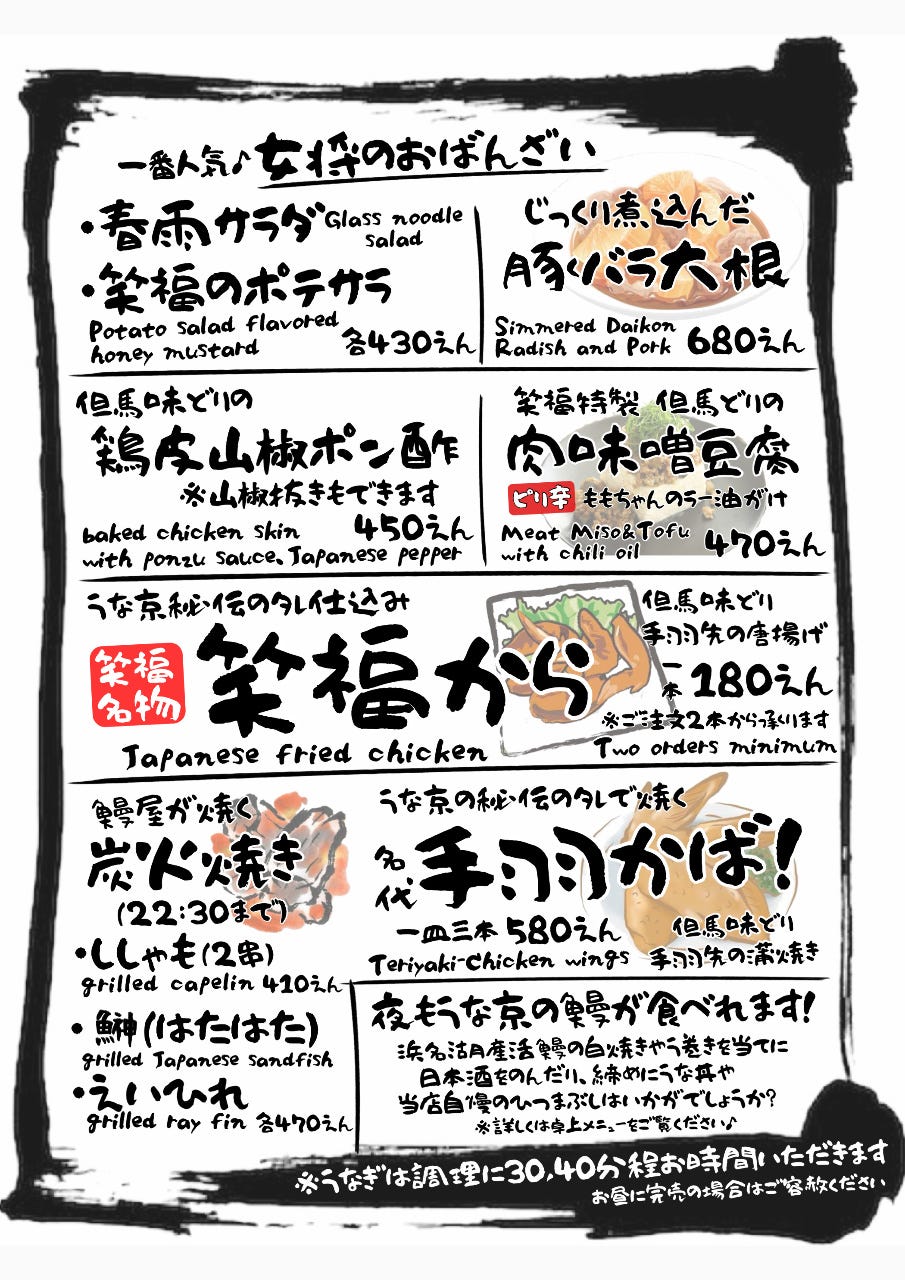 一番人気♪女将のおばんざい
・春雨サラダ Glass noodle salad
・笑福のポテサラ
Potato salad flavored
honey mustard 各430えん
じっくり煮込んだ
豚バラ大根
Simmered Daikon
Radish and Pork 680えん
但馬味どりの
鶏皮山椒ポン酢
※山椒抜きもできます
baked chicken skin 450えん
with ponzu sauce、Japanese pepper
笑福特製 但馬どりの
肉味噌豆腐
ピリ辛 ももちゃんのラー油がけ
Meat Miso&Tofu
with chili oil 470えん
うな京秘伝のタレ仕込み
笑福名物 笑福から
Japanese fried chicken
但馬味どり
手羽先の唐揚げ
一本 180えん
※ご注文2本から承ります
Two orders minimum
鰻屋が焼く
炭火焼き
(22:30まで)
・ししゃも(2串)
grilled capelin 410えん
・鰰(はたはた)
grilled Japanese sandfish
・えいひれ
grilled ray fin 各470えん
うな京の秘伝のタレで焼く
名代 手羽かば!
一皿三本 580えん
Teriyaki-Chicken wings
但馬味どり
手羽先の蒲焼き
夜もうな京の鰻が食べれます!
浜名湖産活鰻の白焼きやう巻きを当てに
日本酒をのんだり、締めにうな丼や
当店自慢のひつまぶしはいかがでしょうか?
※詳しくは卓上メニューをご覧ください♪
※うなぎは調理に30,40分程お時間いただきます
お昼に完売の場合はご容赦ください